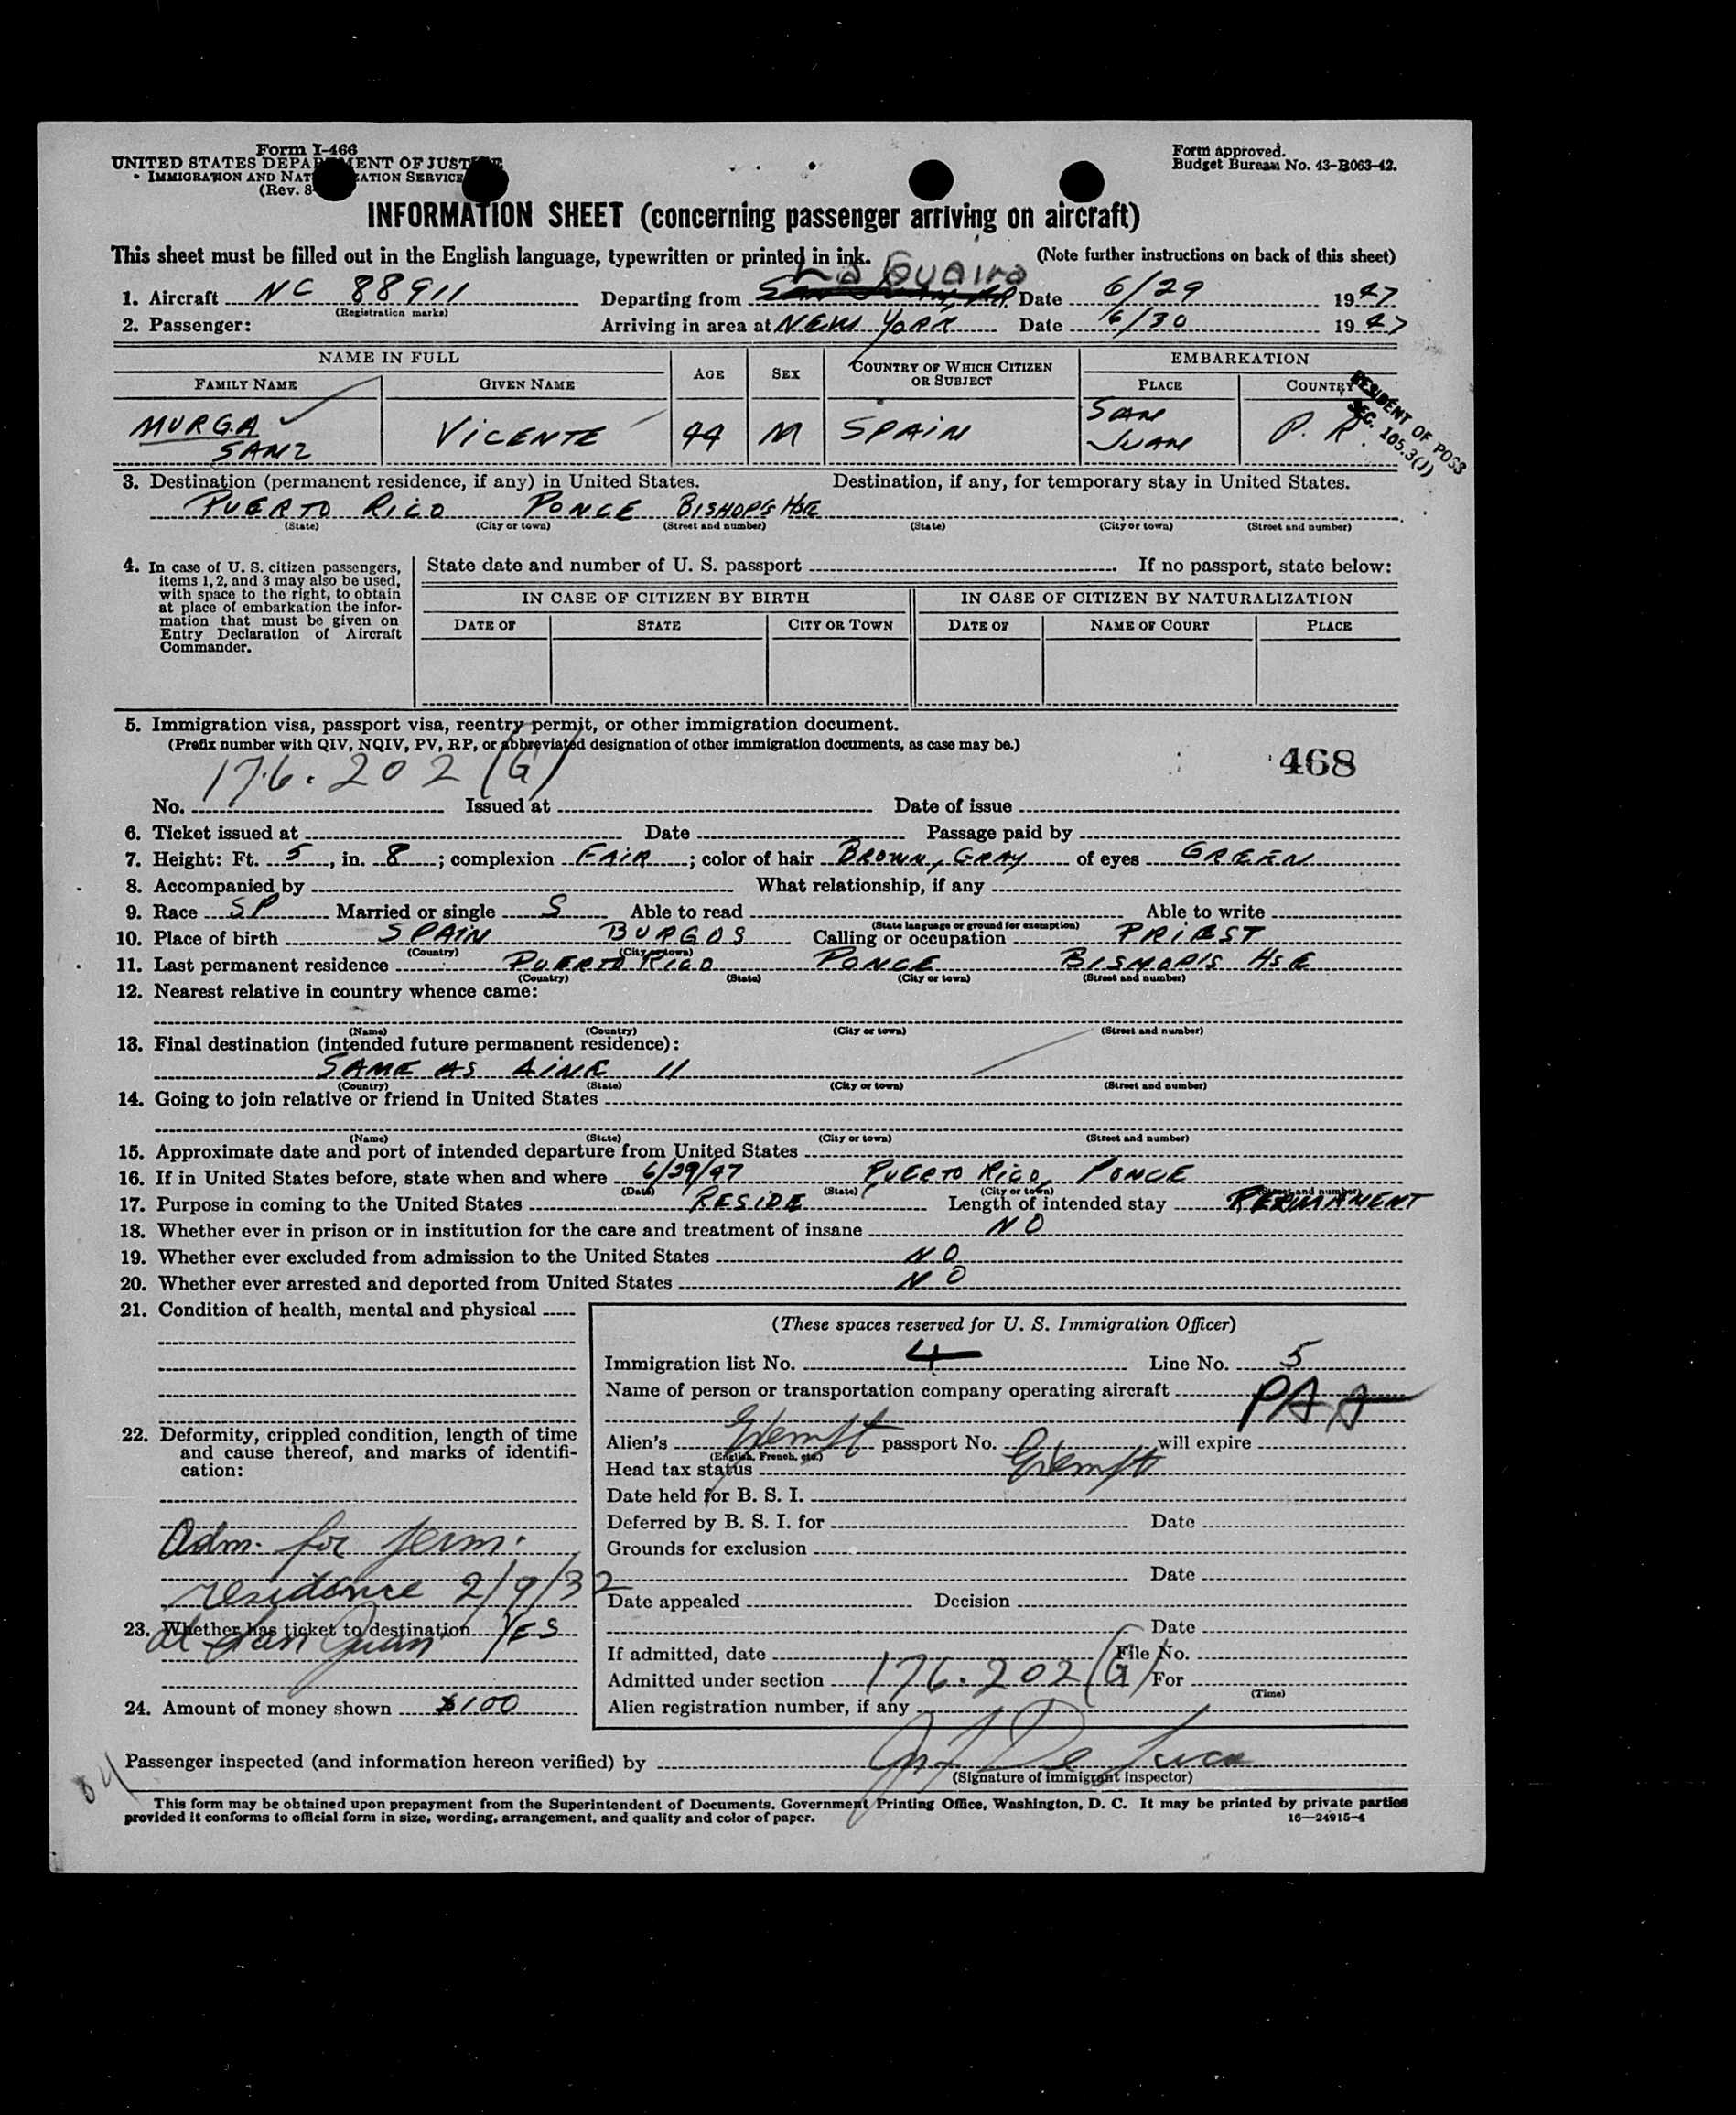 Form I-466
UNITED STATES DEPARTMENT OF JUSTICE
IMMIGRATION AND NATURALIZATION SERVICE
(Rev. 8-
Form approved.
Budget Bureau No. 43-B063-42.
INFORMATION SHEET (concerning passenger arriving on aircraft)
This sheet must be filled out in the English language, typewritten or printed in ink. (Note further instructions on back of this sheet)
La Guaira
1. Aircraft NC 88911 Departing from San Juan, P.R. Date 6/29 1947
(Registration marks)
2. Passenger: Arriving in area at NEW YORK Date 6/30 1947
NAME IN FULL EMBARKATION
FAMILY NAME GIVEN NAME AGE SEX COUNTRY OF WHICH CITIZEN OR SUBJECT PLACE COUNTRY
RESIDENT OF POSS
SEC. 105.3(J)
MURGA SANZ VICENTE 44 M SPAIN SAN JUAN P.R.
3. Destination (permanent residence, if any) in United States. Destination, if any, for temporary stay in United States.
PUERTO RICO PONCE BISHOP'S HSE
(State) (City or town) (Street and number) (State) (City or town) (Street and number)
4. In case of U. S. citizen passengers, items 1, 2, and 3 may also be used, with space to the right, to obtain at place of embarkation the information that must be given on Entry Declaration of Aircraft Commander.
State date and number of U. S. passport If no passport, state below:
IN CASE OF CITIZEN BY BIRTH IN CASE OF CITIZEN BY NATURALIZATION
DATE OF STATE CITY OR TOWN DATE OF NAME OF COURT PLACE
5. Immigration visa, passport visa, reentry permit, or other immigration document.
(Prefix number with QIV, NQIV, PV, RP, or abbreviated designation of other immigration documents, as case may be.)
468
176.202 (G)
No. Issued at Date of issue
6. Ticket issued at Date Passage paid by
7. Height: Ft. 5, in. 8; complexion FAIR; color of hair BROWN, GRAY of eyes GREEN
8. Accompanied by What relationship, if any
9. Race SP Married or single S Able to read Able to write
(State language or ground for exemption)
10. Place of birth SPAIN BURGOS Calling or occupation PRIEST
(Country) (City or town)
11. Last permanent residence PUERTO RICO PONCE BISHOP'S HSE
(Country) (State) (City or town) (Street and number)
12. Nearest relative in country whence came:
(Name) (Country) (City or town) (Street and number)
13. Final destination (intended future permanent residence):
SAME AS LINE 11
(Country) (State) (City or town) (Street and number)
14. Going to join relative or friend in United States
(Name) (State) (City or town) (Street and number)
15. Approximate date and port of intended departure from United States
16. If in United States before, state when and where 6/29/47 PUERTO RICO, PONCE
(Date) (State) (City or town) (Street and number)
17. Purpose in coming to the United States RESIDE Length of intended stay PERMANENT
18. Whether ever in prison or in institution for the care and treatment of insane NO
19. Whether ever excluded from admission to the United States NO
20. Whether ever arrested and deported from United States NO
21. Condition of health, mental and physical
22. Deformity, crippled condition, length of time and cause thereof, and marks of identification:
Adm. for perm.
residence 2/9/32
at San Juan
23. Whether has ticket to destination YES
24. Amount of money shown $100
(These spaces reserved for U. S. Immigration Officer)
Immigration list No. 4 Line No. 5
Name of person or transportation company operating aircraft PAA
Alien's Exempt passport No. will expire
(English, French, etc.)
Head tax status Exempt
Date held for B. S. I.
Deferred by B. S. I. for Date
Grounds for exclusion
Date
Date appealed Decision
Date
If admitted, date File No.
Admitted under section 176.202 (G) For
(Time)
Alien registration number, if any
Passenger inspected (and information hereon verified) by De Luca
(Signature of immigrant inspector)
This form may be obtained upon prepayment from the Superintendent of Documents, Government Printing Office, Washington, D. C. It may be printed by private parties
provided it conforms to official form in size, wording, arrangement, and quality and color of paper. 16—24915-4